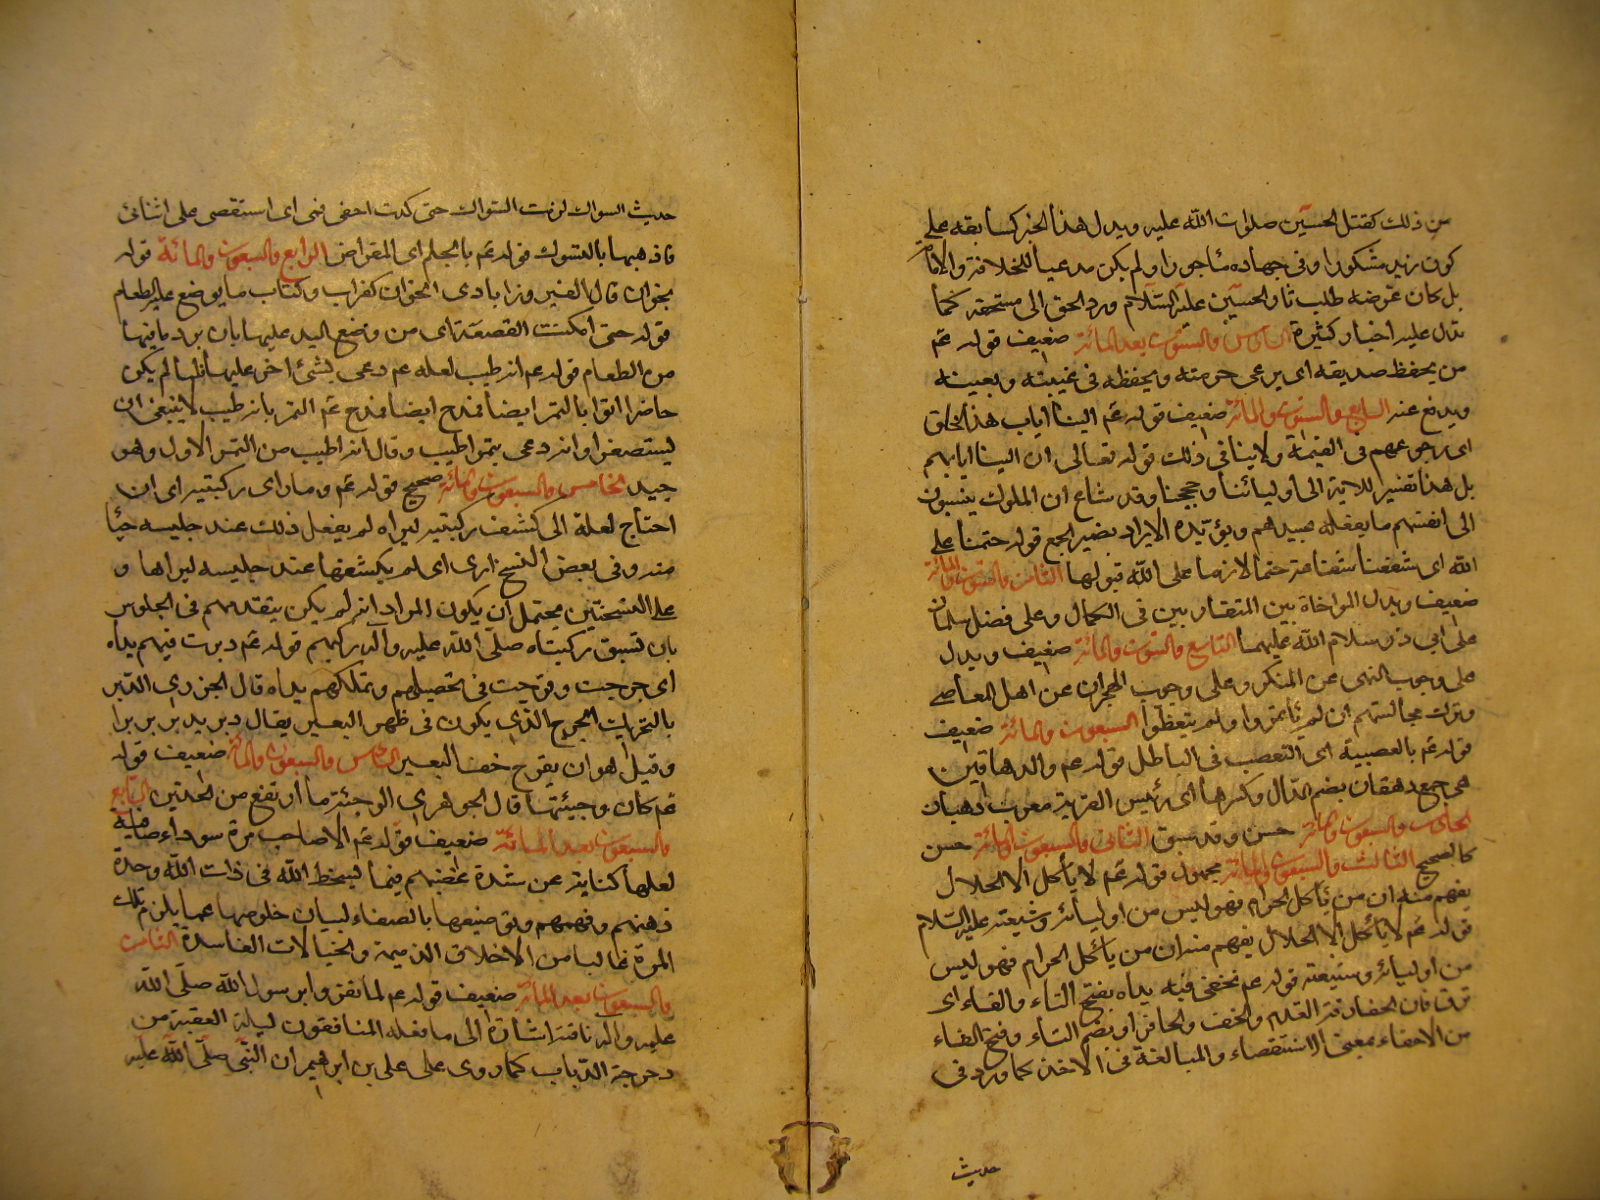 من ذلك كقتل الحسين صلوات الله عليه ويدل هذا الخبر كسابقه على
كون زيد مشكورا وفى جهاده مأجورا ولم يكن مدعيا للخلافة والامامة
بل كان غرضه طلب ثار الحسين عليه السلام ورد الحق الى مستحقه كما
تدل عليه اخبار كثيرة السادس والستون بعد المائة ضعيف قوله عم
من يحفظ صديقه اى يرعى حرمته ويحفظه فى غيبته ويعينه
ويدفع عنه السابع والستون والمائة ضعيف قوله عم الينا اياب هذا الخلق
اى رجوعهم فى القيمة ولا ينافى ذلك قوله تعالى ان الينا ايابهم
بل هذا تفسير للاية الى اوليائنا وحججنا وقد شاع ان الملوك ينسبون
الى انفسهم ما يفعله عبيدهم ويؤيده الايراد بضمير الجمع قوله حتمنا على
الله اى شفعنا شفاعة حتما لازما على الله قبولها الثامن والستون والمائة
ضعيف ويدل المواخاة بين المتقاربين فى الكمال وعلى فضل سلمان
على ابى ذر سلام الله عليهما التاسع والستون والمائة ضعيف ويدل
على وجوب النهى عن المنكر وعلى وجوب الهجران عن اهل المعاصى
وترك مجالستهم ان لم يأتمروا ولم يتعظوا السبعون والمائة ضعيف
قوله عم بالعصبية اى التعصب فى الباطل قوله عم والدهاقين
هى جمع دهقان بضم الدال وكسرها اى رئيس القرية معرب دهبان
الحادى والسبعون والمائة حسن وقد سبق الثانى والسبعون والمائة حسن
كالصحيح الثالث والسبعون والمائة مجهول قوله عم لا يأكل الا الحلال
يفهم منه ان من يأكل الحرام فهو ليس من اوليائه وشيعته عليه السلام
قوله عم لا يأكل الا الحلال يفهم منه ان من يأكل الحرام فهو ليس
من اوليائه وشيعته قوله عم تحفى فيه يداه بفتح التاء والفاء اى
ترق فان الحفا رقة القدم والخف والحافر او بضم التاء وفتح الفاء
من الاحفاء بمعنى الاستقصاء والمبالغة فى الاخذ كما ورد فى
حديث
حديث السواك لزمت السواك حتى كدت احفى فمى اى استقصى على اسنانى
فاذهبها بالتسوك قوله عم بالجلم اى المقراض الرابع والسبعون والمائة قوله
بخوان قال الفيروزابادى الخوان كغراب وكتاب ما يوضع عليه الطعام
قوله حتى امكنت القصعة اى من وضع اليد عليها بان برد ما فيها
من الطعام قوله عم انه طيب لعله عم دعى بشئ اخر عليها فلما لم يكن
حاضرا اتوا بالتمر ايضا فمدح ايضا فمدح عم التمر بانه طيب لا ينبغى ان
يستصغر او انه دعى بتمر اطيب وقال انه اطيب من التمر الاول وهو
جيد الخامس والسبعون والمائة صحيح قوله عم وما رأى ركبتيه اى ان
احتاج لعلة الى كشف ركبتيه ليراه لم يفعل ذلك عند جليسه حياء
منه وفى بعض النسخ ارى اى لم يكشفها عند جليسه ليراها و
على النسختين محتمل ان يكون المراد انه لم يكن يتقدمهم فى الجلوس
بان تسبق ركبتاه صلى الله عليه وآله ركبهم قوله عم دبرت فيهم يداه
اى جرحت وقرحت فى تحصيلهم وتملكهم يداه قال الجزرى الدبر
بالتحريك الجرح الذى يكون فى ظهر البعير يقال دبر يدبر دبرا
وقيل هو ان يقرح خف البعير السادس والسبعون والمائة ضعيف قوله
عم كان وجيئتها قال الجوهرى الوجنة ما ارتفع من الخدين السابع
والسبعون بعد المائة ضعيف قوله عم الا صاحب مرة سوداء صافية
لعلها كناية عن شدة غضبهم فيما يسخط الله فى ذات الله وحدة
ذهنهم وفهمهم وتوصيفها بالصفاء لبيان خلوصها عما يلزم تلك
المرة غالبا من الاخلاق الذميمة والخيالات الفاسدة الثامن
والسبعون بعد المائة ضعيف قوله عم لما نفروا برسول الله صلى الله
عليه وآله ناقته اشارة الى ما فعله المنافقون ليلة العقبة من
دحرجة الدباب كما روى على على بن ابرهيم ان النبى صلى الله عليه